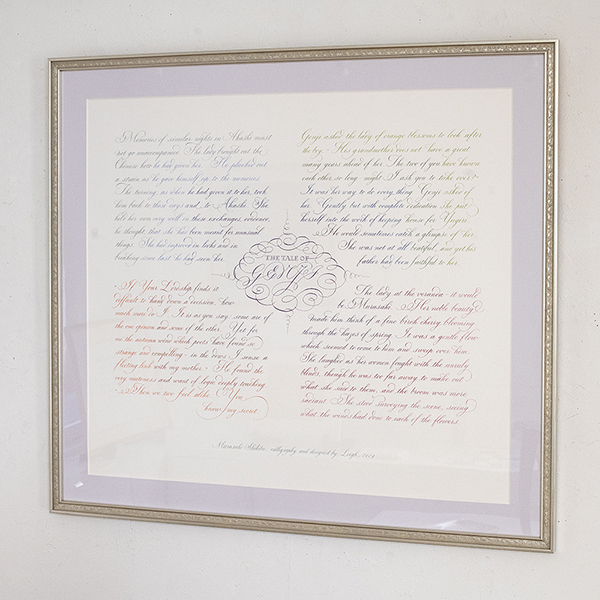 Memories of similar nights in Akashi must
not go unaccompanied. The lady brought out the
Chinese koto he had given her. He plucked out
a strain as he gave himself up to the memories.
The tuning, as when he had given it to her, took
him back to those days and to Akashi. She
held her own very well in these exchanges, evidence,
he thought, that she had been meant for unusual
things. She had improved in looks and in
bearing since last he had seen her.
Genji asked the lady of orange blossoms to look after
the boy. His grandmother does not have a great
many years ahead of her. The two of you have known
each other so long might I ask you to take over?
It was her way to do every thing Genji asked of
her. Gently but with complete dedication she put
herself into the work of keeping house for Yugiri.
He would sometimes catch a glimpse of her.
She was not at all beautiful, and yet his
father had been faithful to her.
THE TALE OF
GENJI
If Your Ladyship finds it
difficult to hand down a decision, how
much more do I. It is as you say some are of
the one opinion and some of the other. Yet for
me the autumn wind which poets have found so
strange and compelling - in the dews I sense a
fleeting link with my mother. He found the
very muteness and want of logic deeply touching.
Then we two feel alike. You
know my secret
The lady at the veranda - it would
be Murasaki. Her noble beauty
made him think of a fine birch cherry, blooming
through the hazes of spring. It was a gentle flow
which seemed to come to him and sweep over him.
She laughed as her women fought with the unruly
blinds, though he was too far away to make out
what she said to them, and the bloom was more
radiant. She stood surveying the scene, seeing
what the winds had done to each of the flowers.
Murasaki Shikibu, calligraphy and designed by